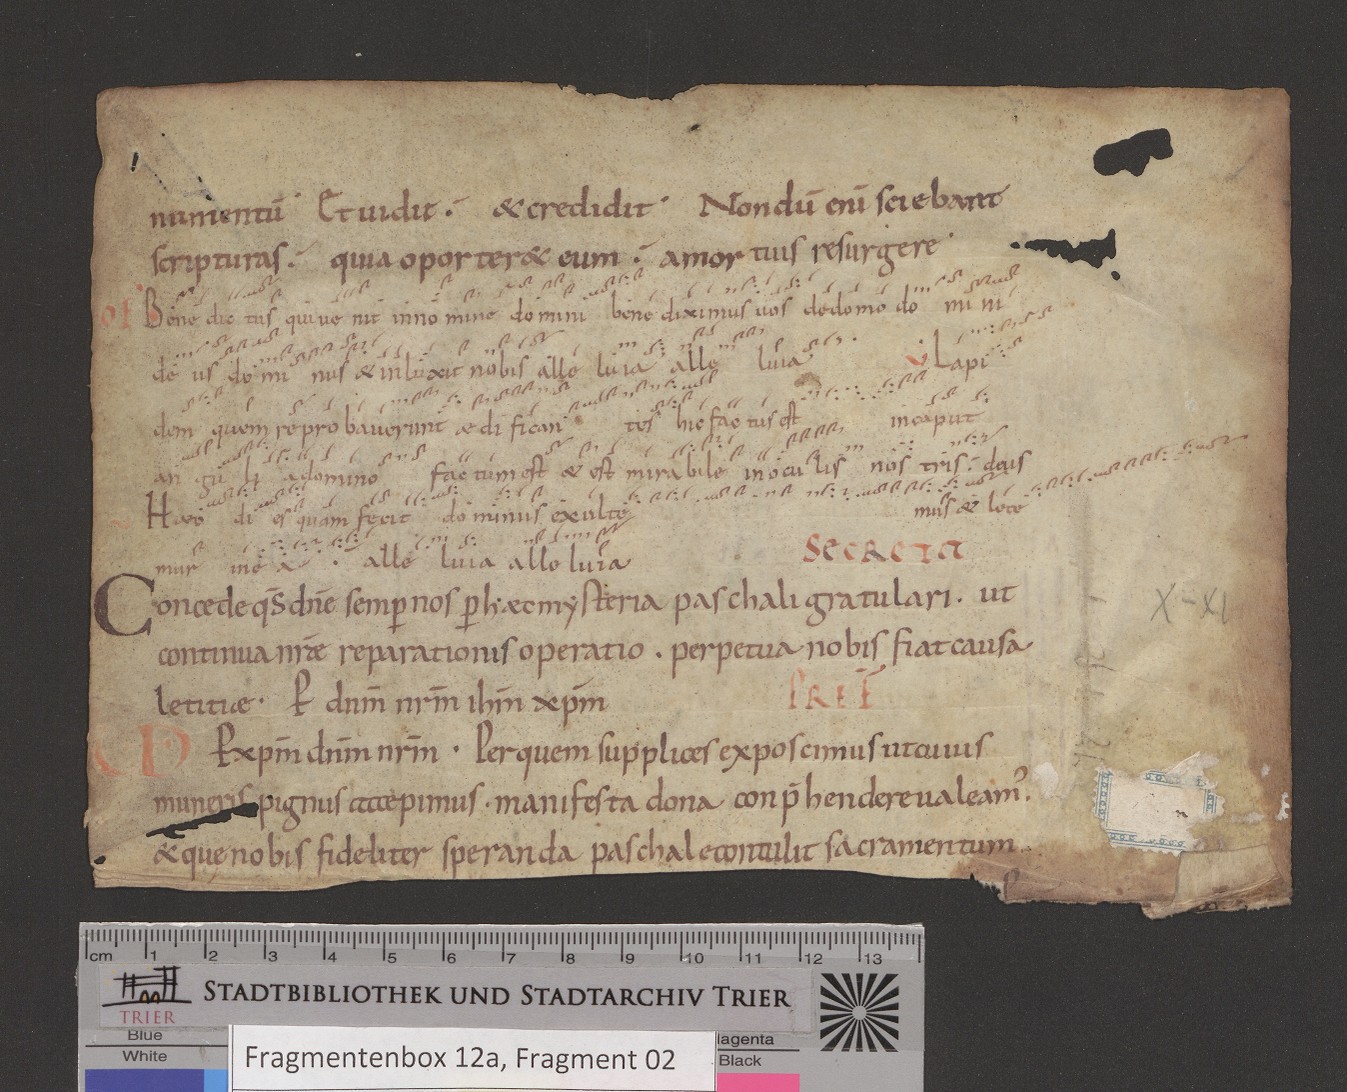 numentū Et uidit. & credidit. Nondū eni sciebant
scripturas. quia oporter& eum. a mortuis resurgere.
OF Bene dic tus qui ue nit in no mine do mini bene diximus uos de domo do mi ni
de us do mi nus & inluxit nobis alle luia alle luia V Lapi
dem quem re pro bauerunt ædi fican tes hic fac tus est in caput
an gu li a domino fac tum est & est mirabile in ocu lis nos tris. deus
Haec di es quam fecit do minus exulte mus & lete
mur in e a. alle luia alle luia SECRETA
Concede qs dne semp nos p hæc mysteria paschali gratulari. ut
continua nrae reparationis operatio. perpetua nobis fiat causa
letitiæ. P dnm nrm ihm xpm PREF
D P xpm dnm nrm. Per quem supplices exposcimus ut cuius
muneris pignus accepimus. manifesta dona conp̄hendere ualeam.
& que nobis fideliter speranda paschale contulit sacramentum
X-XI
cm 1 2 3 4 5 6 7 8 9 10 11 12 13
STADTBIBLIOTHEK UND STADTARCHIV TRIER
TRIER
Blue
White
Magenta
Black
Fragmentenbox 12a, Fragment 02